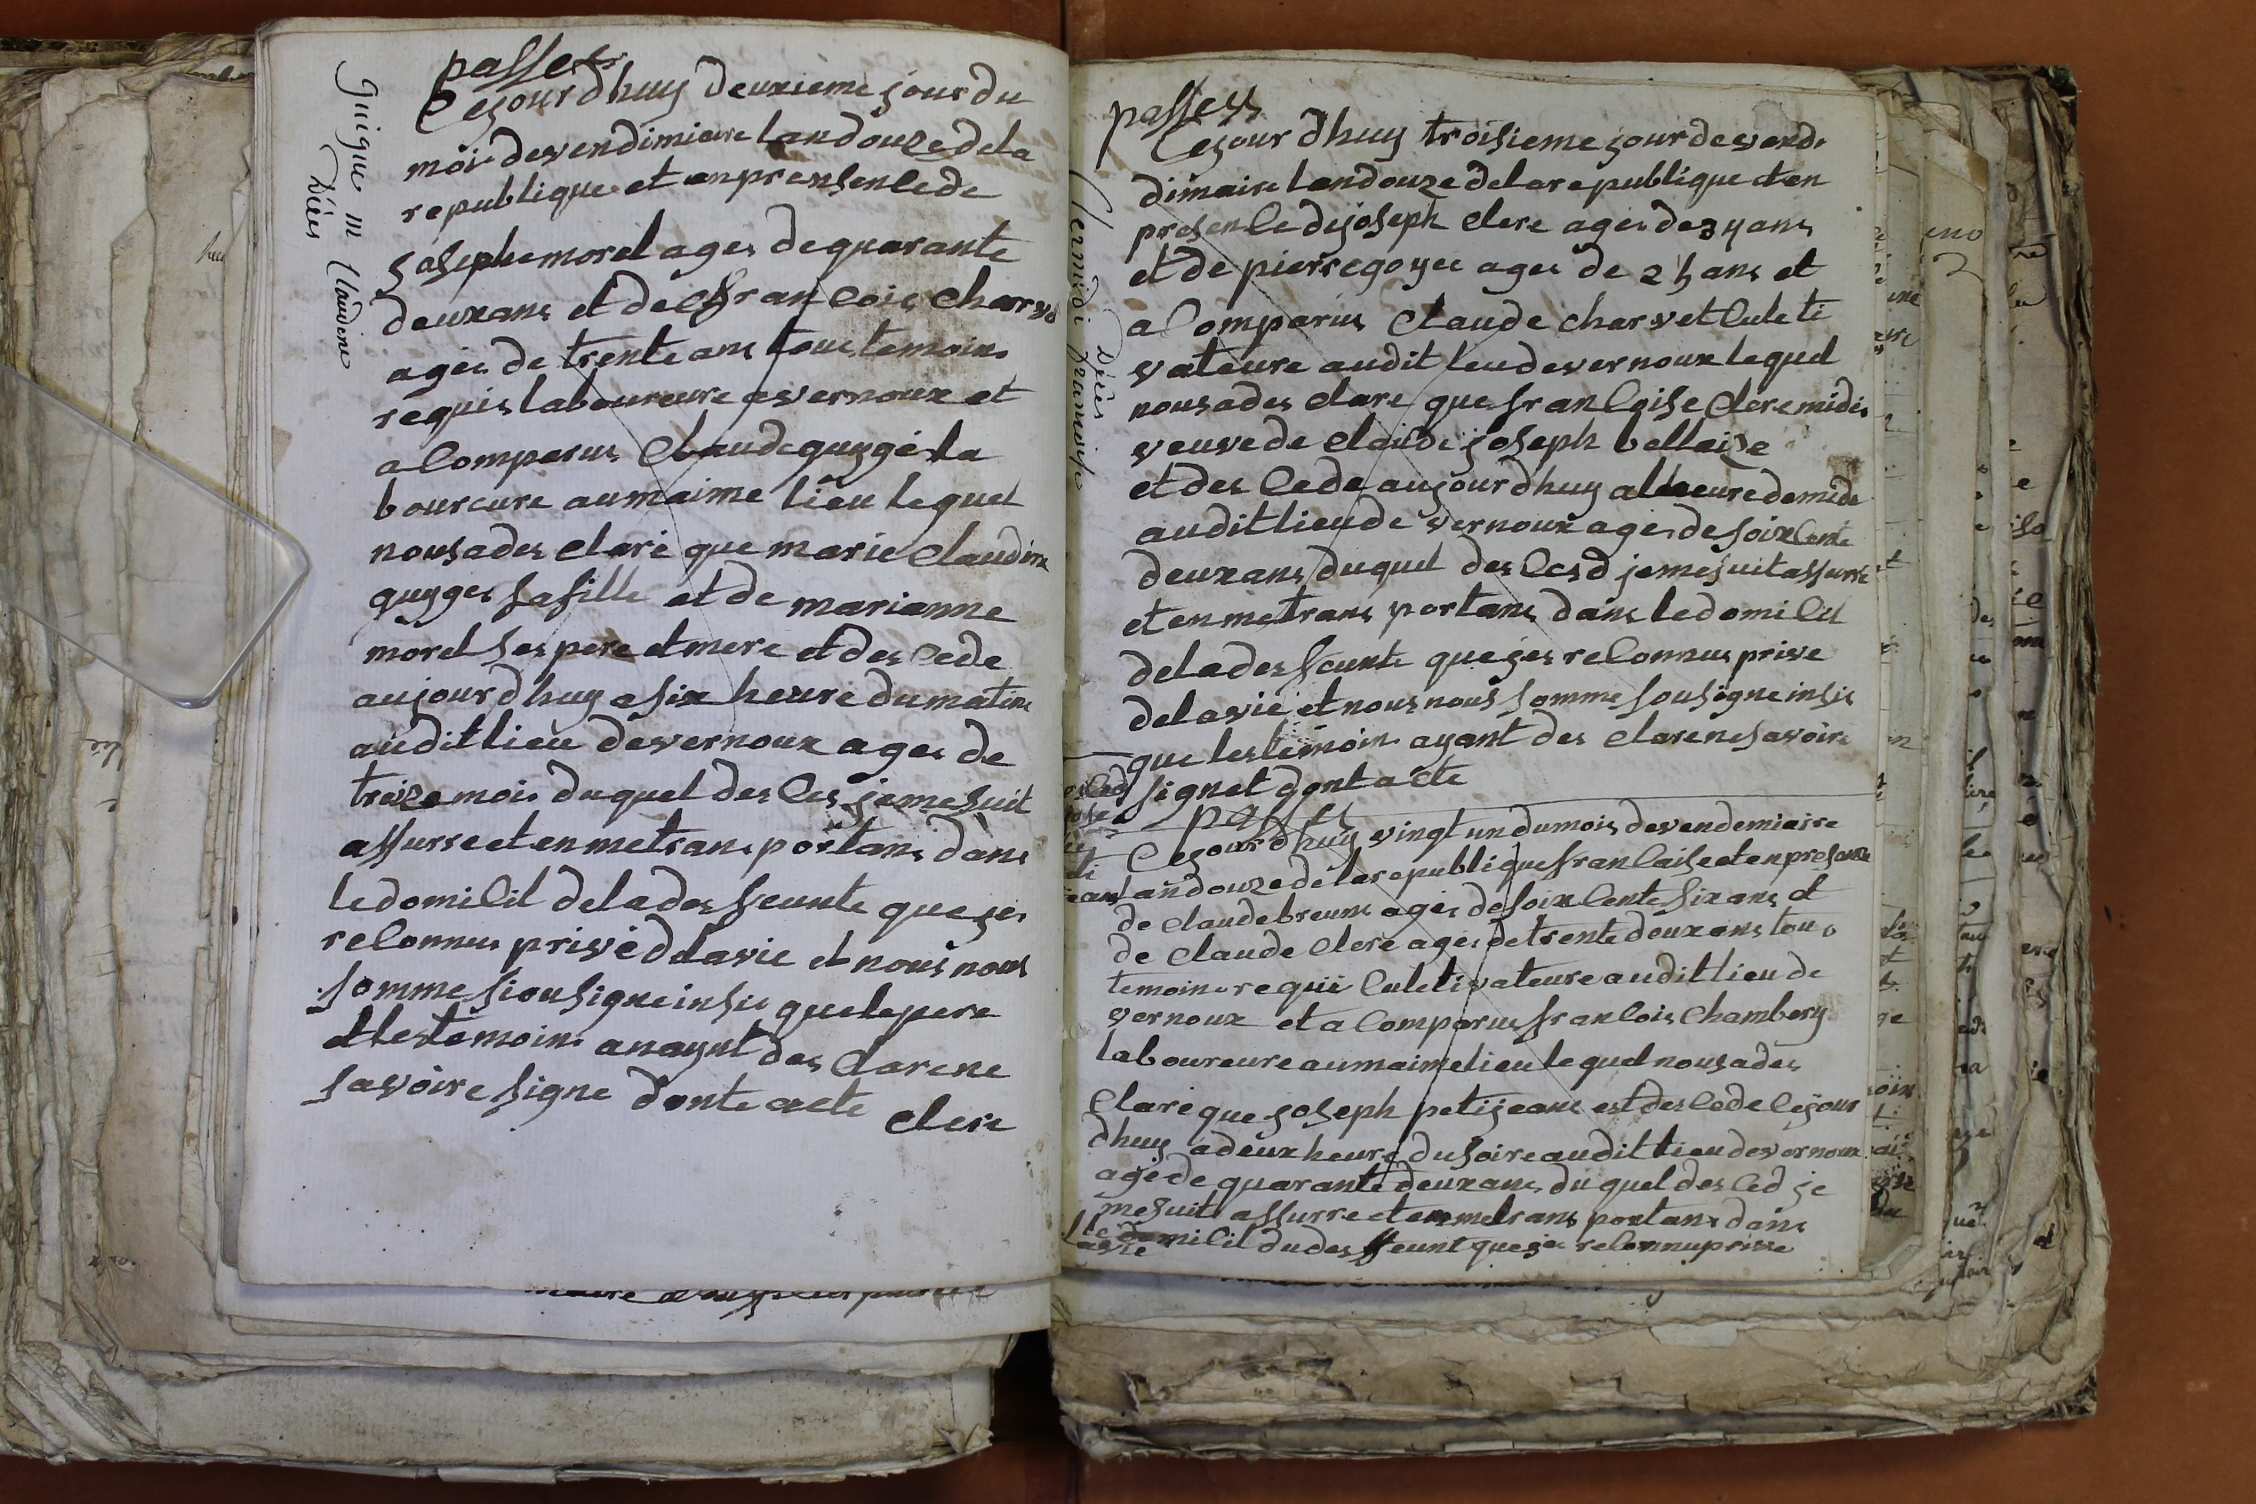 passe
Cejourdhuy deuxieme jour du
moi devendimiaire landouzedela
republique et enprensencede
josephemorel ages dequarante
deuxans et de francois charvo
ages de trente ans tous temoins
requis laboureure avernoux et
acomparus Claudeguygesla
boureure aumaime lieu lequel
nousades clare que marie Claudine
guyges safille et de marianne
morel sespere etmere et descede
aujourdhuy asix heure dumatin
auditlieu devernoux ages de
traizemois duquel desces jemesuit
assurre et enmetrans portans dans
ledomicil delades feunte queges
reconnus privé delavie et nous nous
somme sousigne insis quelepere
et lestemoins anaynt des clarene
savoire signe donte acte
clere
guigue m claudine
Décès
passe
Cejourdhuy troisieme jourdevend
dimaire landouze delarepublique et en
presencedejoseph clere ages de 34 ans
et de pierregoyee ages de 25 ans et
acomparus Claude charvet culeti
vateure audit leudevernoux lequel
nousades clare que francoise cleremidis
veuvede claude joseph bellaise
et des cede aujourdhuy alheuredemide
auditlieude vernoux agesdesoixcente
deuxans duquel des cesd jemesuitassurre
et enmetrans portans dans ledomicil
delades feunte queges reconnus prive
delavie et nous nous somme sousigne insis
que lestemoins ayant des clarenesavoire
signet dont acte
Clermidi francoise
Décès
passe
Cejourdhuy vingt undumois devendemiaire
landouzedelarepublique francaise etenpresance
de claudebreune ages desoixcente sixans et
de claude clere ages detrente deuxans tous
temoins requis culetivateure auditlieude
vernoux et acomparus francois chambery
laboureure aumaimelieu lequel nousades
clare que joseph petijeans est descede cejour
dhuy adeuxheure dusoire audit lieudevernoux
agede quarante deuxans duquel desced je
mesuit assurre et enmetrans portans dans
ledomicil dudes feunt queges reconnuprive